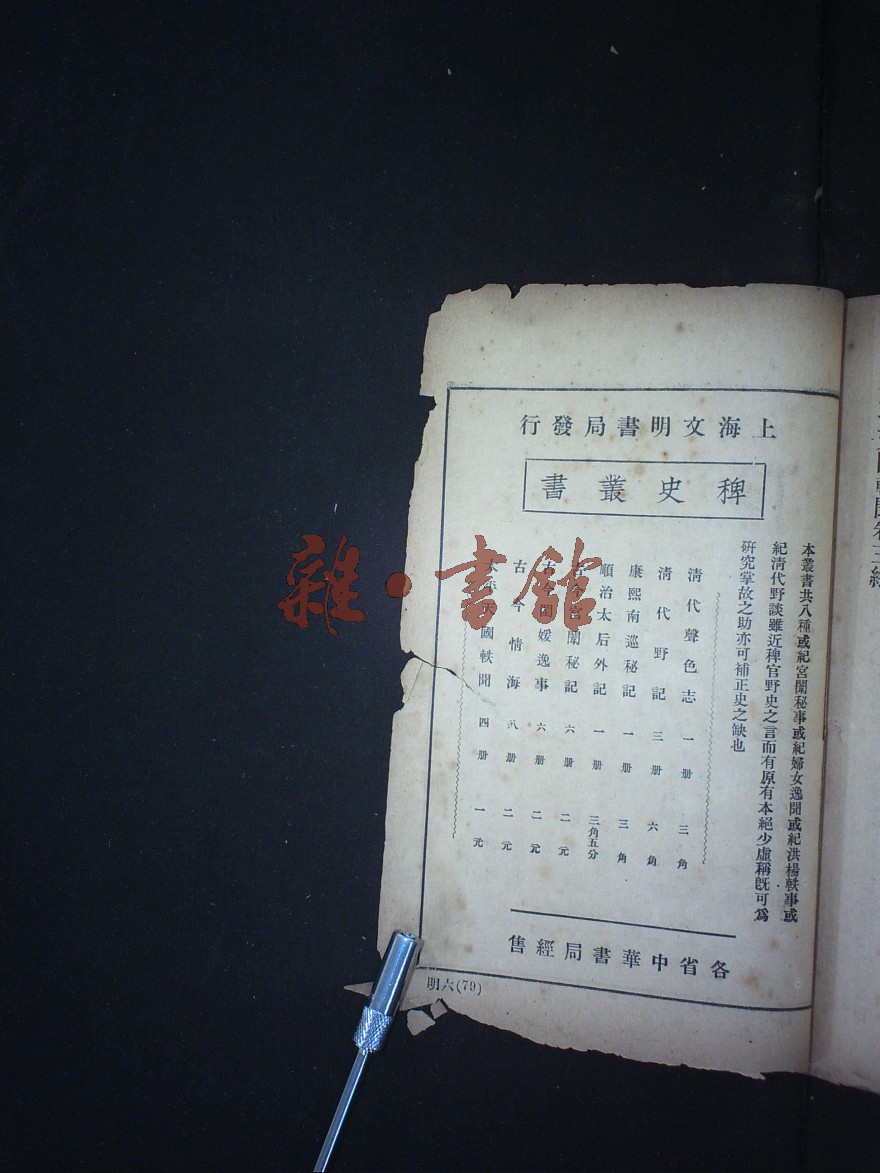 上海文明書局發行
稗史叢書
本叢書共八種或紀宮闈秘事或紀婦女逸聞或紀洪楊軼事或
紀清代野談雖近稗官野史之言而有原有本絕少虛稱既可爲
研究掌故之助亦可補正史之缺也
清代聲色志 一册 三角
清代野記 三册 六角
康熙南巡秘記 一册 三角
順治太后外記 一册 三角五分
古今宮闈秘記 六册 二元
古今閨媛逸事 六册 二元
古今情海 八册 二元
太平天國軼聞 四册 一元
各省中華書局經售
明六(79)
雜·書館